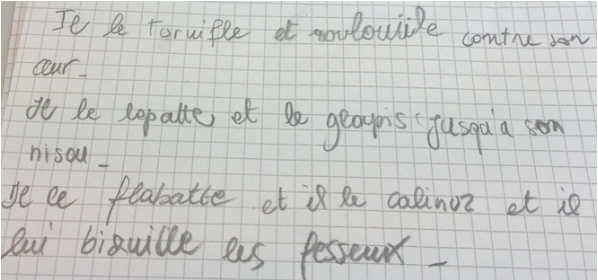 Je le toruifle et roulouide contre son
cœur_
Je le lopatte, et le glapis jusqu'a son
nisou_
Je le flabatte et il le calinoz et il
lui biguille les fesseux_